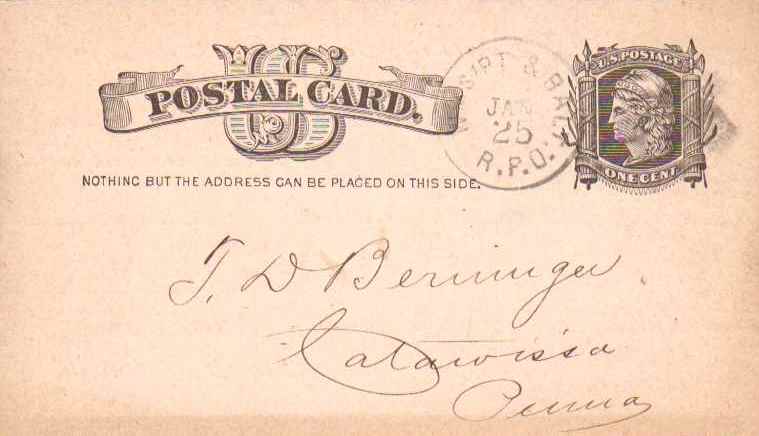 US
POSTAL CARD.
NOTHING BUT THE ADDRESS CAN BE PLACED ON THIS SIDE.
& BALT
JAN
25
R.P.O.
U.S. POSTAGE
ONE CENT
T. D Berninger
Catawissa
Penna